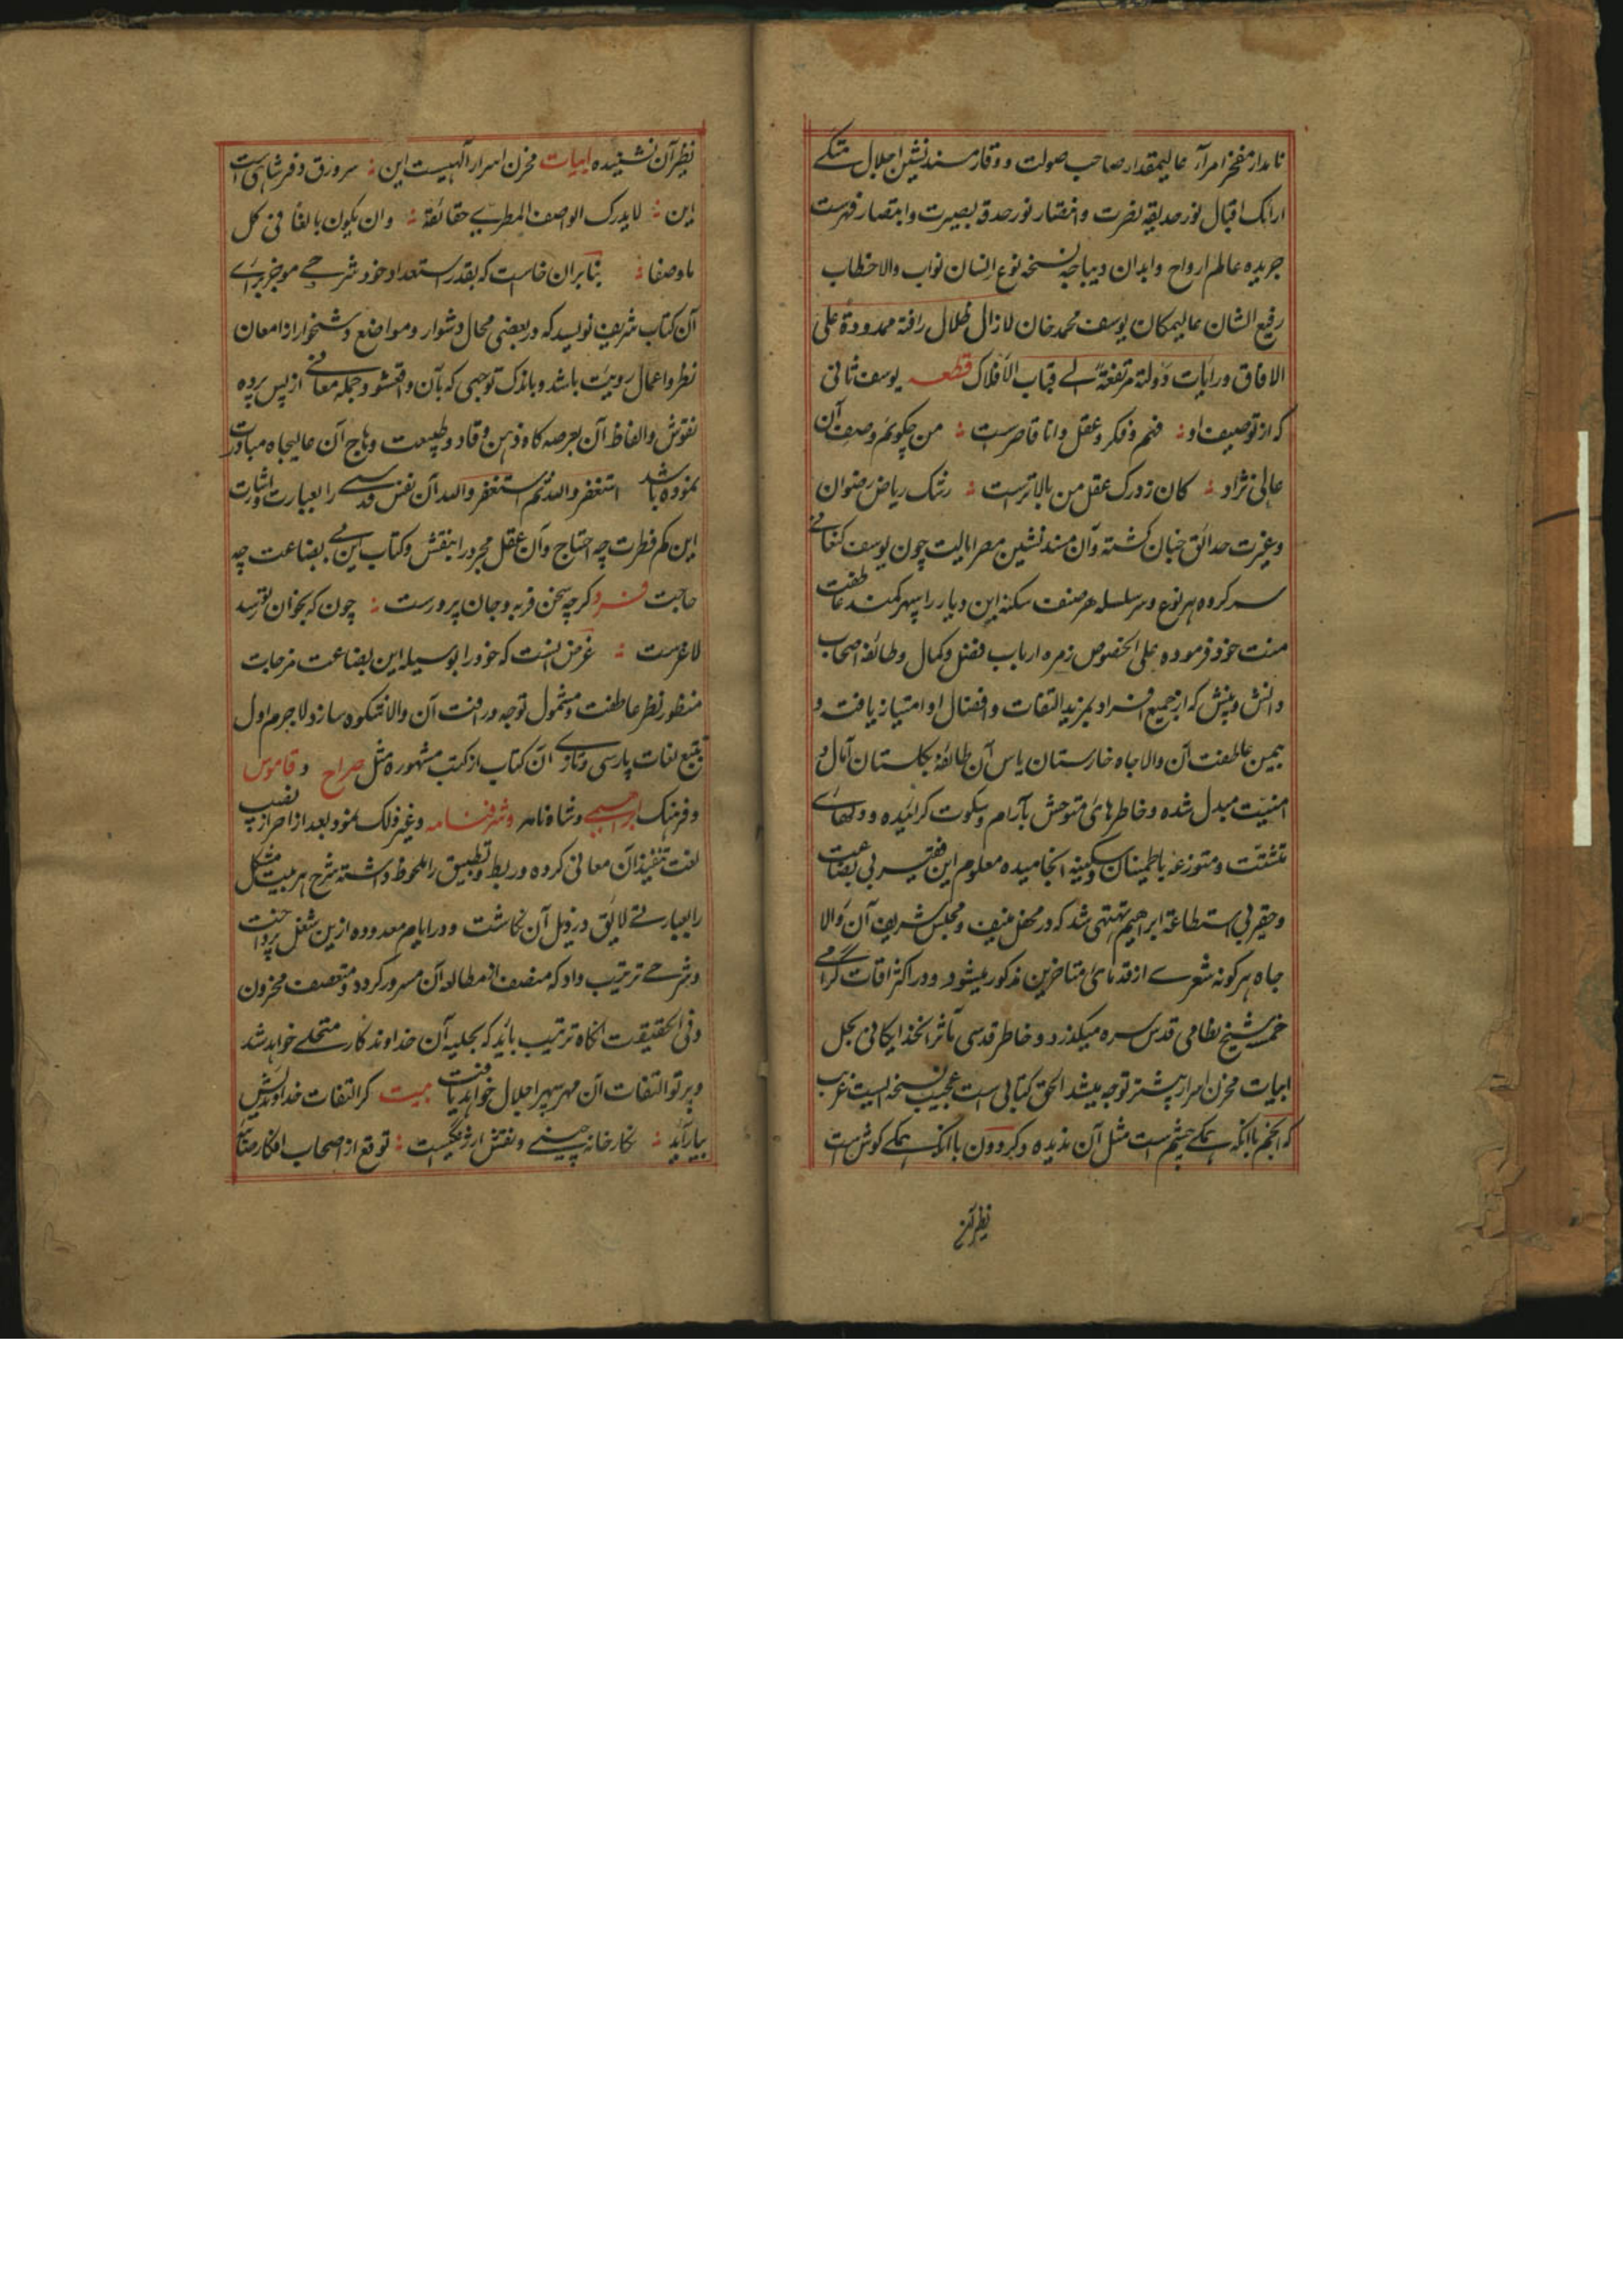 نامدار مفخر امرآر عالیمقدار صاحب صولت و وقار مسند نشین اجلال متکے
ارائک اقبال نور حدیقه نضرت و انتضار نور حدقه بصیرت و ابتصار فهرست
جریده عالم ارواح و ابدان دیباچه نسخه نوع انسان نواب والا خطاب
رفیع الشان عالیمکان یوسف محمد خان لازال ظلال رافة ممدودة علی
الافاق ورایات دولته مرتفعة الے قباب الافلاک قطعه یوسف ثانی
که از توصیف او فهم و فکر و عقل دانا قاصرست من چگویم وصف آن
عالی نژاد کان ز درک عقل من بالاترست رشک ریاض رضوان
و غیرت حدائق جنان گشته و آن مسند نشین مصر ایالت چون یوسف کنعانے
سرکرده هر نوع و سر سلسله هر صنف سکنه این دیار را بسر کمند عاطفت
منت خود فرموده علی الخصوص زمره ارباب فضل و کمال و طائفه اصحاب
دانش و بینش که از جمیع افراد بمزید التفات و افضال او امتیاز یافته و
بیمن عاطفت آن والا جاه خارستان یاس آن طائفه بگلستان آمال و
امنیت مبدل شده و خاطرهای متوحش بآرام و سکوت گرائیده و دلهای
تشتت و متوزعه باطمینان و سکینه انجامیده معلوم این فقیر بی بضاعت
و حقیر بی استطاعة ابراهیم تهتهی شد که در محفل منیف و مجلس شریف آن والا
جاه هر گونه شعرے از قدمای و متاخرین مذکور میشود و در اکثر اوقات گرامے
خمسه شیخ نظامی قدس سره میگذرد و خاطر قدسی مآثر انخذایکانی بحل
ابیات مخزن اسرار بیشتر توجه میشد الحق کتابی است عجیب و نسخه ایست غریب
که انجم با انکه همگے چشم است مثل آن ندیده و گردون با انکه همگے گوش است
نظیر آن
نظیر آن نشنیده ابیات مخزن اسرار الهیست این سر ورق دفتر شاهی است
این لا یدرک الواصف المطرے حقائقة وان یکون بالغا فی کل
ما وصفا بنا بران خاست که بقدر استعداد خود شرحے موجز برای
آن کتاب شریف نویسد که در بعضی محال دشوار و مواضع دشخوار از امعان
نظر و اعمال رویت باشد و باندک توجهی که بآن واقعشود جمله معانے از پس پرده
نقوش و الفاظ آن بعرصه گاه ذهن وقاد و طبیعت وهاج آن عالیجاه مبادرت
نموده باشد استغفر والله ثم استغفر والله آن نفس قدسے را بعبارت و اشارت
این کم فطرت چه احتیاج و آن عقل مجرد را بنقش و کتاب این بے بضاعت چه
حاجت فرد گرچه سخن فربه و جان پرورست چون که بخوان تو رسد
لاغرست غرض انست که خود را بوسیله این بضاعت مزجات
منظور نظر عاطفت و مشمول توجه و رافت آن والا شکوه سازد لاجرم اول
تتبع لغات پارسی و تازے آن کتاب از کتب مشهوره مثل صراح و قاموس
و فرهنگ ابراهیمے و شاه نامه و شرفنامه و غیر ذلک نمود بعد از احراز نصیب
لغت تنفیذ آن معانی کرده و ربط و تطبیق را ملحوظ داشته شرح هر بیت مشکل
را بعبارتے لایق در ذیل آن نگاشت و در ایام معدوده ازین شغل پرداخت
و شرحے ترتیب داد که منصف از مطالعه آن مسرور گردد و متعصف محزون
و فی الحقیقت انگاه ترتیب یابد که بحلیه آن خداوندگار متحلے خواهد شد
و پرتو التفات آن مهر سپهر اجلال خواهد یافت بیت گر التفات خداوندیش
بیاراید نگارخانه چینے و نقش ارژنگیست توقع از اصحاب افکار صائبه